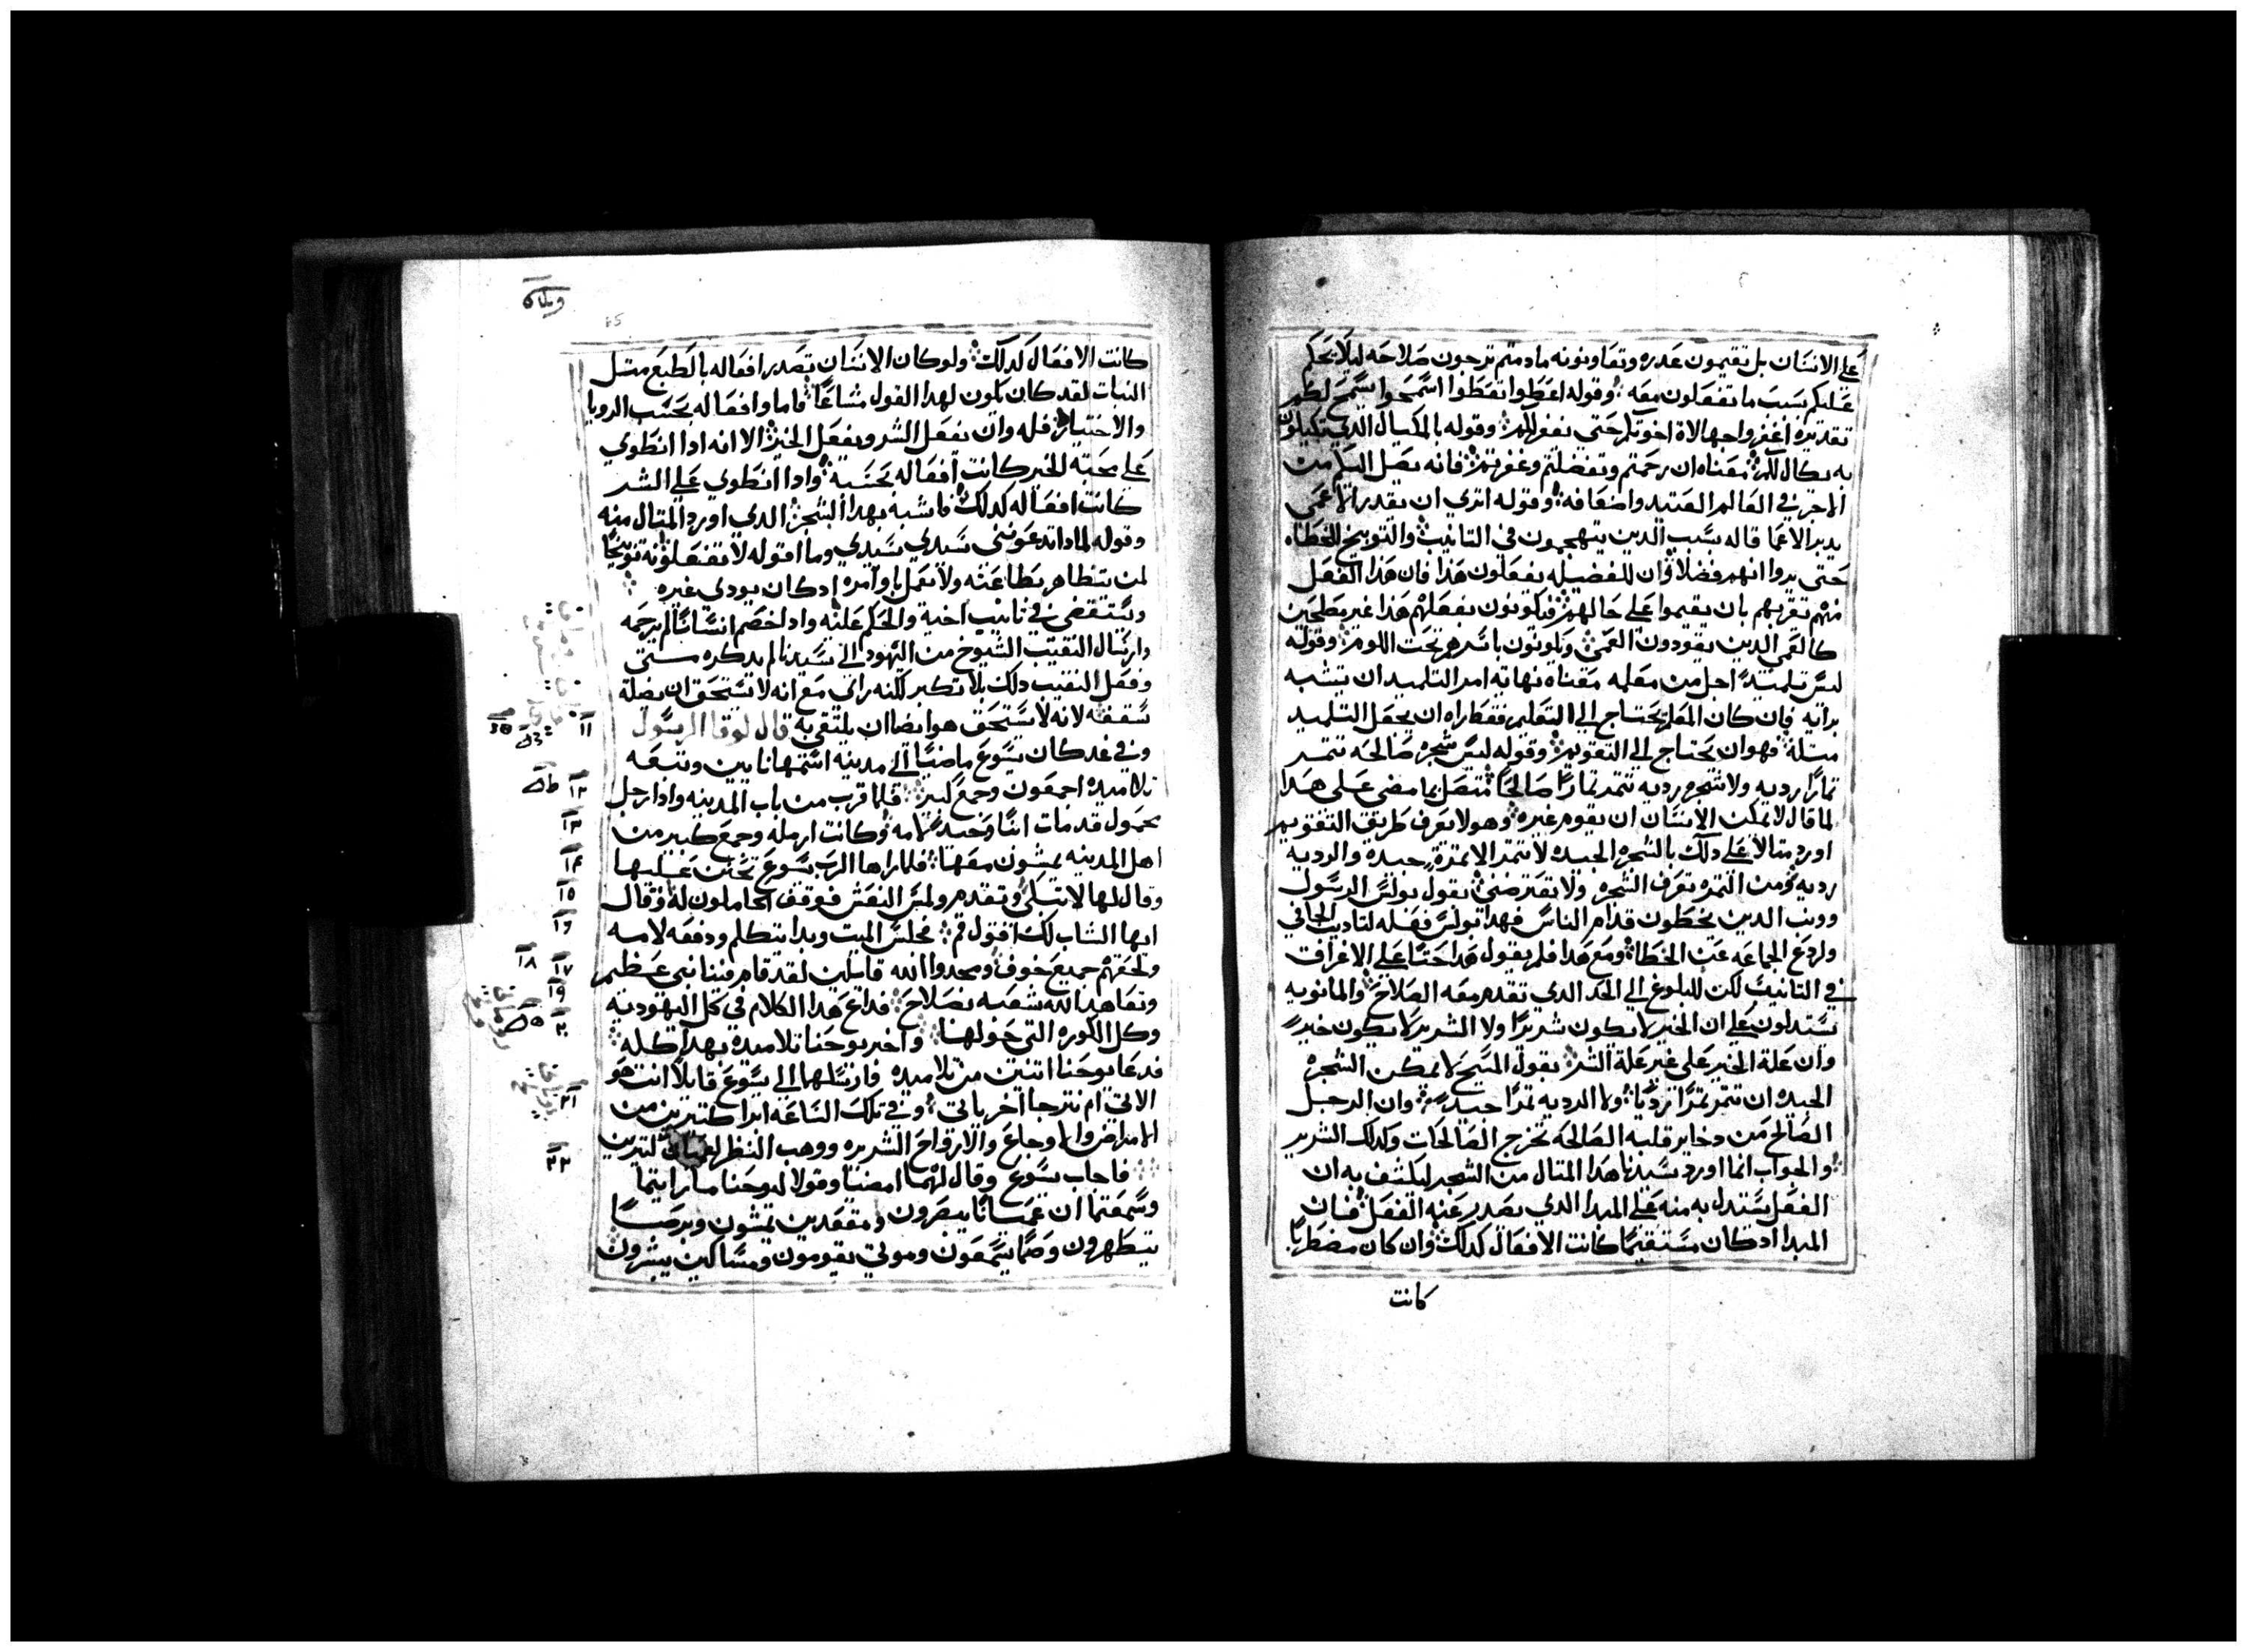 على الانسان بل تقيمون عدره وتعاونونه مادمتم ترجون صلاحه ليلا يحكم
عليكم بسبب ما تفعلون معه وقوله اعطوا تعطوا اسمحوا يسمح لكم
تقديره اغفروا جهالاة اخوتكم حتى يغفر لكم وقوله بالمكيال الدي تكيلون
به يكال لكم معناه ان رحمتم وتفضلتم وغفرتم فانه يصل اليكم من
الاجر في العالم العتيد واضعافه وقوله اتري ان يقدر الاعمى
يدبر الاعما قاله بسبب الدين يتهجمون في التانيب والتوبيخ للخطاه
حتى يروا انهم فضلا وان للفضيله يفعلون هدا فان هدا الفعل
منهم تغريهم بان يقيموا على حالهم فيكونون بفعلهم هدا غير مصلحين
كالعمي الدين يقودون العمي ويكونون باسرهم تحت اللوم وقوله
ليس تلميدا اجل من معلمه معناه نهاية امر التلميد ان يتشبه
برايه فان كان المعلم يحتاج الي التعليم فقصاراه ان يجعل التلميد
مثله فهو ان يحتاج الي التقويم وقوله ليس شجره صالحه تتمر
تمارا رديه ولا شجره رديه تتمر تمارا صالحا تتصل بما مضى على هدا
لما قال لا يمكن الانسان ان يقوم غيره وهو لا يعرف طريق التقويم
اورد متالا على دلك بالشجره الجيده لا تتمر الا تمرة جيده والرديه
رديه ومن التمره تعرف الشجره ولا تعترضني بقول بولس الرسول
ووبخ الدين يخطون قدام الناس فهدا بولس فعله لتاديب الجاني
ولردع الجماعه عن الخطا ومع هدا فلم يقول هدا حتا على الاغراق
في التانيب لكن للبلوغ الي الحد الدي تقدم معه الصلاح والمانويه
يستدلون على ان الخير لا يكون شريرا ولا الشرير لا يكون خير
وان علة الخير على غير علة الشر بقول المسيح لا يمكن الشجره
الجيده ان تتمر تمرا رديا ولا الرديه تمرا جيد وان الرجل
الصالح من دخاير قلبه الصالحه تخرج الصالحات وكدلك الشرير
والجواب انما اورد سيدنا هدا المتال من الشجر ليكشف به ان
الفعل يستدل به منه على المبدا الدي يصدر عنه الفعل فان
المبدا ادكان مستقيما كانت الافعال كدلك وان كان مضطربا
كانت
كانت الافعال كدلك ولو كان الانسان تصدر افعاله بالطبع متل
النبات لقد كان يكون لهدا القول مشاغا فاما وافعاله بحسب الرويا
والاختيار فله وان يفعل الشر ويفعل الخير الا انه ادا انطوي
على محبة الخير كانت افعاله بحسبه وادا انطوي على الشر
كانت افعاله كدلك فاشبه بهدا الشجر الدي اورد المتال منه
وقوله لمادا تدعونني سيدي سيدي وما اقوله لا تفعلونه توبيخا
لمن يتظاهر بطاعته ولا يعمل باوامره ادكان يودي غيره
ويستقضي في تانيب اخيه والحكم عليه وادا خصم انسانا لم يرحمه
وارسال النقيب الشيوخ من اليهود الي سيدنا لم يدكره متى
وفعل النقيب دلك بلا تكبر لكنه راي مع انه لا يستحق ان يضله
سقفه لانه لا يستحق هو ايضا ان يلتقي به قال لوقا الرسول
وفي غد كان يسوع ماضيا الي مدينه اسمها نايين وتتبعه
تلاميده اجمعون وجمع كبير فلما قرب من باب المدينه وادا رجل
محمول قد مات ابنا وحيد لامه وكانت ارمله وجمع كبير من
اهل المدينه يمشون معها فلما راها الرب يسوع تحنن عليها
وقال لها لا تبكي وتقدم ولمس النعش فوقف الحاملون له وقال
ايها الشاب لك اقول قم فجلس الميت وبدا يتكلم ودفعه لامه
ولحقهم جميع خوف ومجدوا الله قايلين لقد قام فينا نبي عظيم
وتعاهد الله شعبه بصلاح فداع هدا الكلام في كل اليهوديه
وكل الكوره التي حولها واخبر يوحنا تلاميده بهدا كله
فدعا يوحنا اتنين من تلاميده فارسلهما الي يسوع قايلا انت هو
الاتي ام نترجا اخر ياتي وفي تلك الساعه ابرا كتيرين من
الامراض والاوجاع والارواح الشريره ووهب النظر لعميان كتيرين
فاجاب يسوع وقال لهما امضيا وقولا ليوحنا ما رايتما
وسمعتما ان عميانا يبصرون ومقعدين تمشون وبرصا
يتطهرون وصما يسمعون وموتي يقومون ومساكين يبشرون
١١
١٢
١٣
١٤
١٥
١٦
١٧
١٨
١٩
٢٠
٢١
٢٢